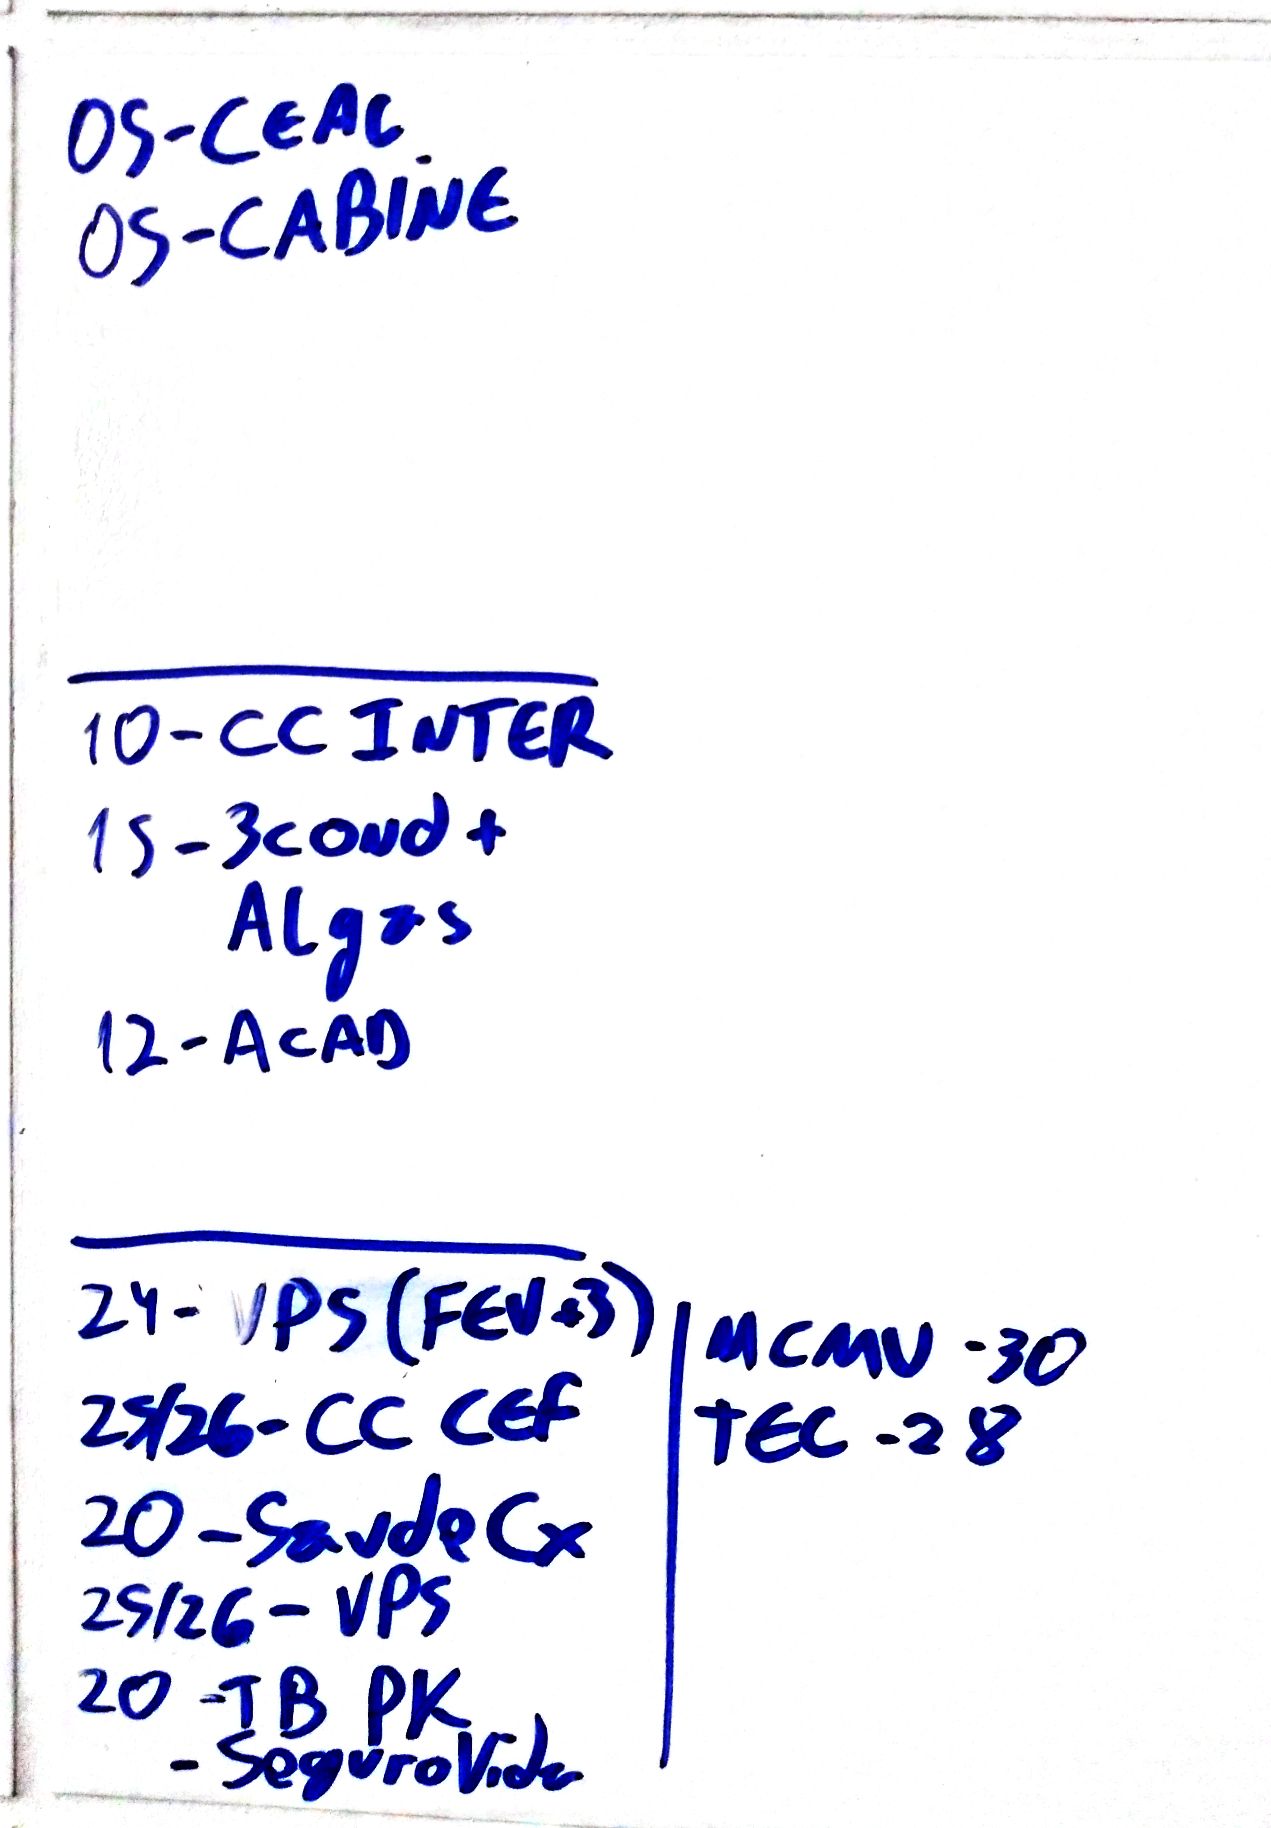 05-CEAL
05-CABINE
10-CC INTER
15-3cond +
Algas
12-AcAD
24-VPS (FEV+3)
25/26-CC CEF
20-Saude Cx
25/26-VPS
20-TB PK
-Seguro Vida
MCMV -30
TEC -28